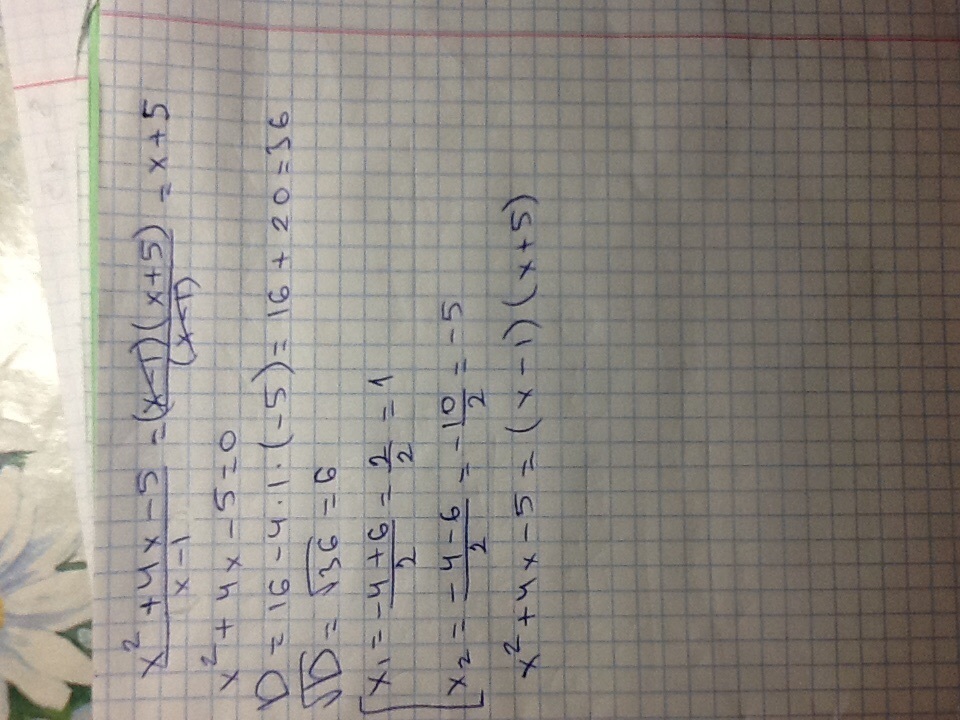 x² + 4x − 5 / x − 1 = (x − 1)(x + 5) / (x − 1) = x + 5
x² + 4x − 5 = 0
D = 16 − 4 · 1 · (−5) = 16 + 20 = 36
√D = √36 = 6
x₁ = −4 + 6 / 2 = 2 / 2 = 1
x₂ = −4 − 6 / 2 = −10 / 2 = −5
x² + 4x − 5 = (x − 1)(x + 5)